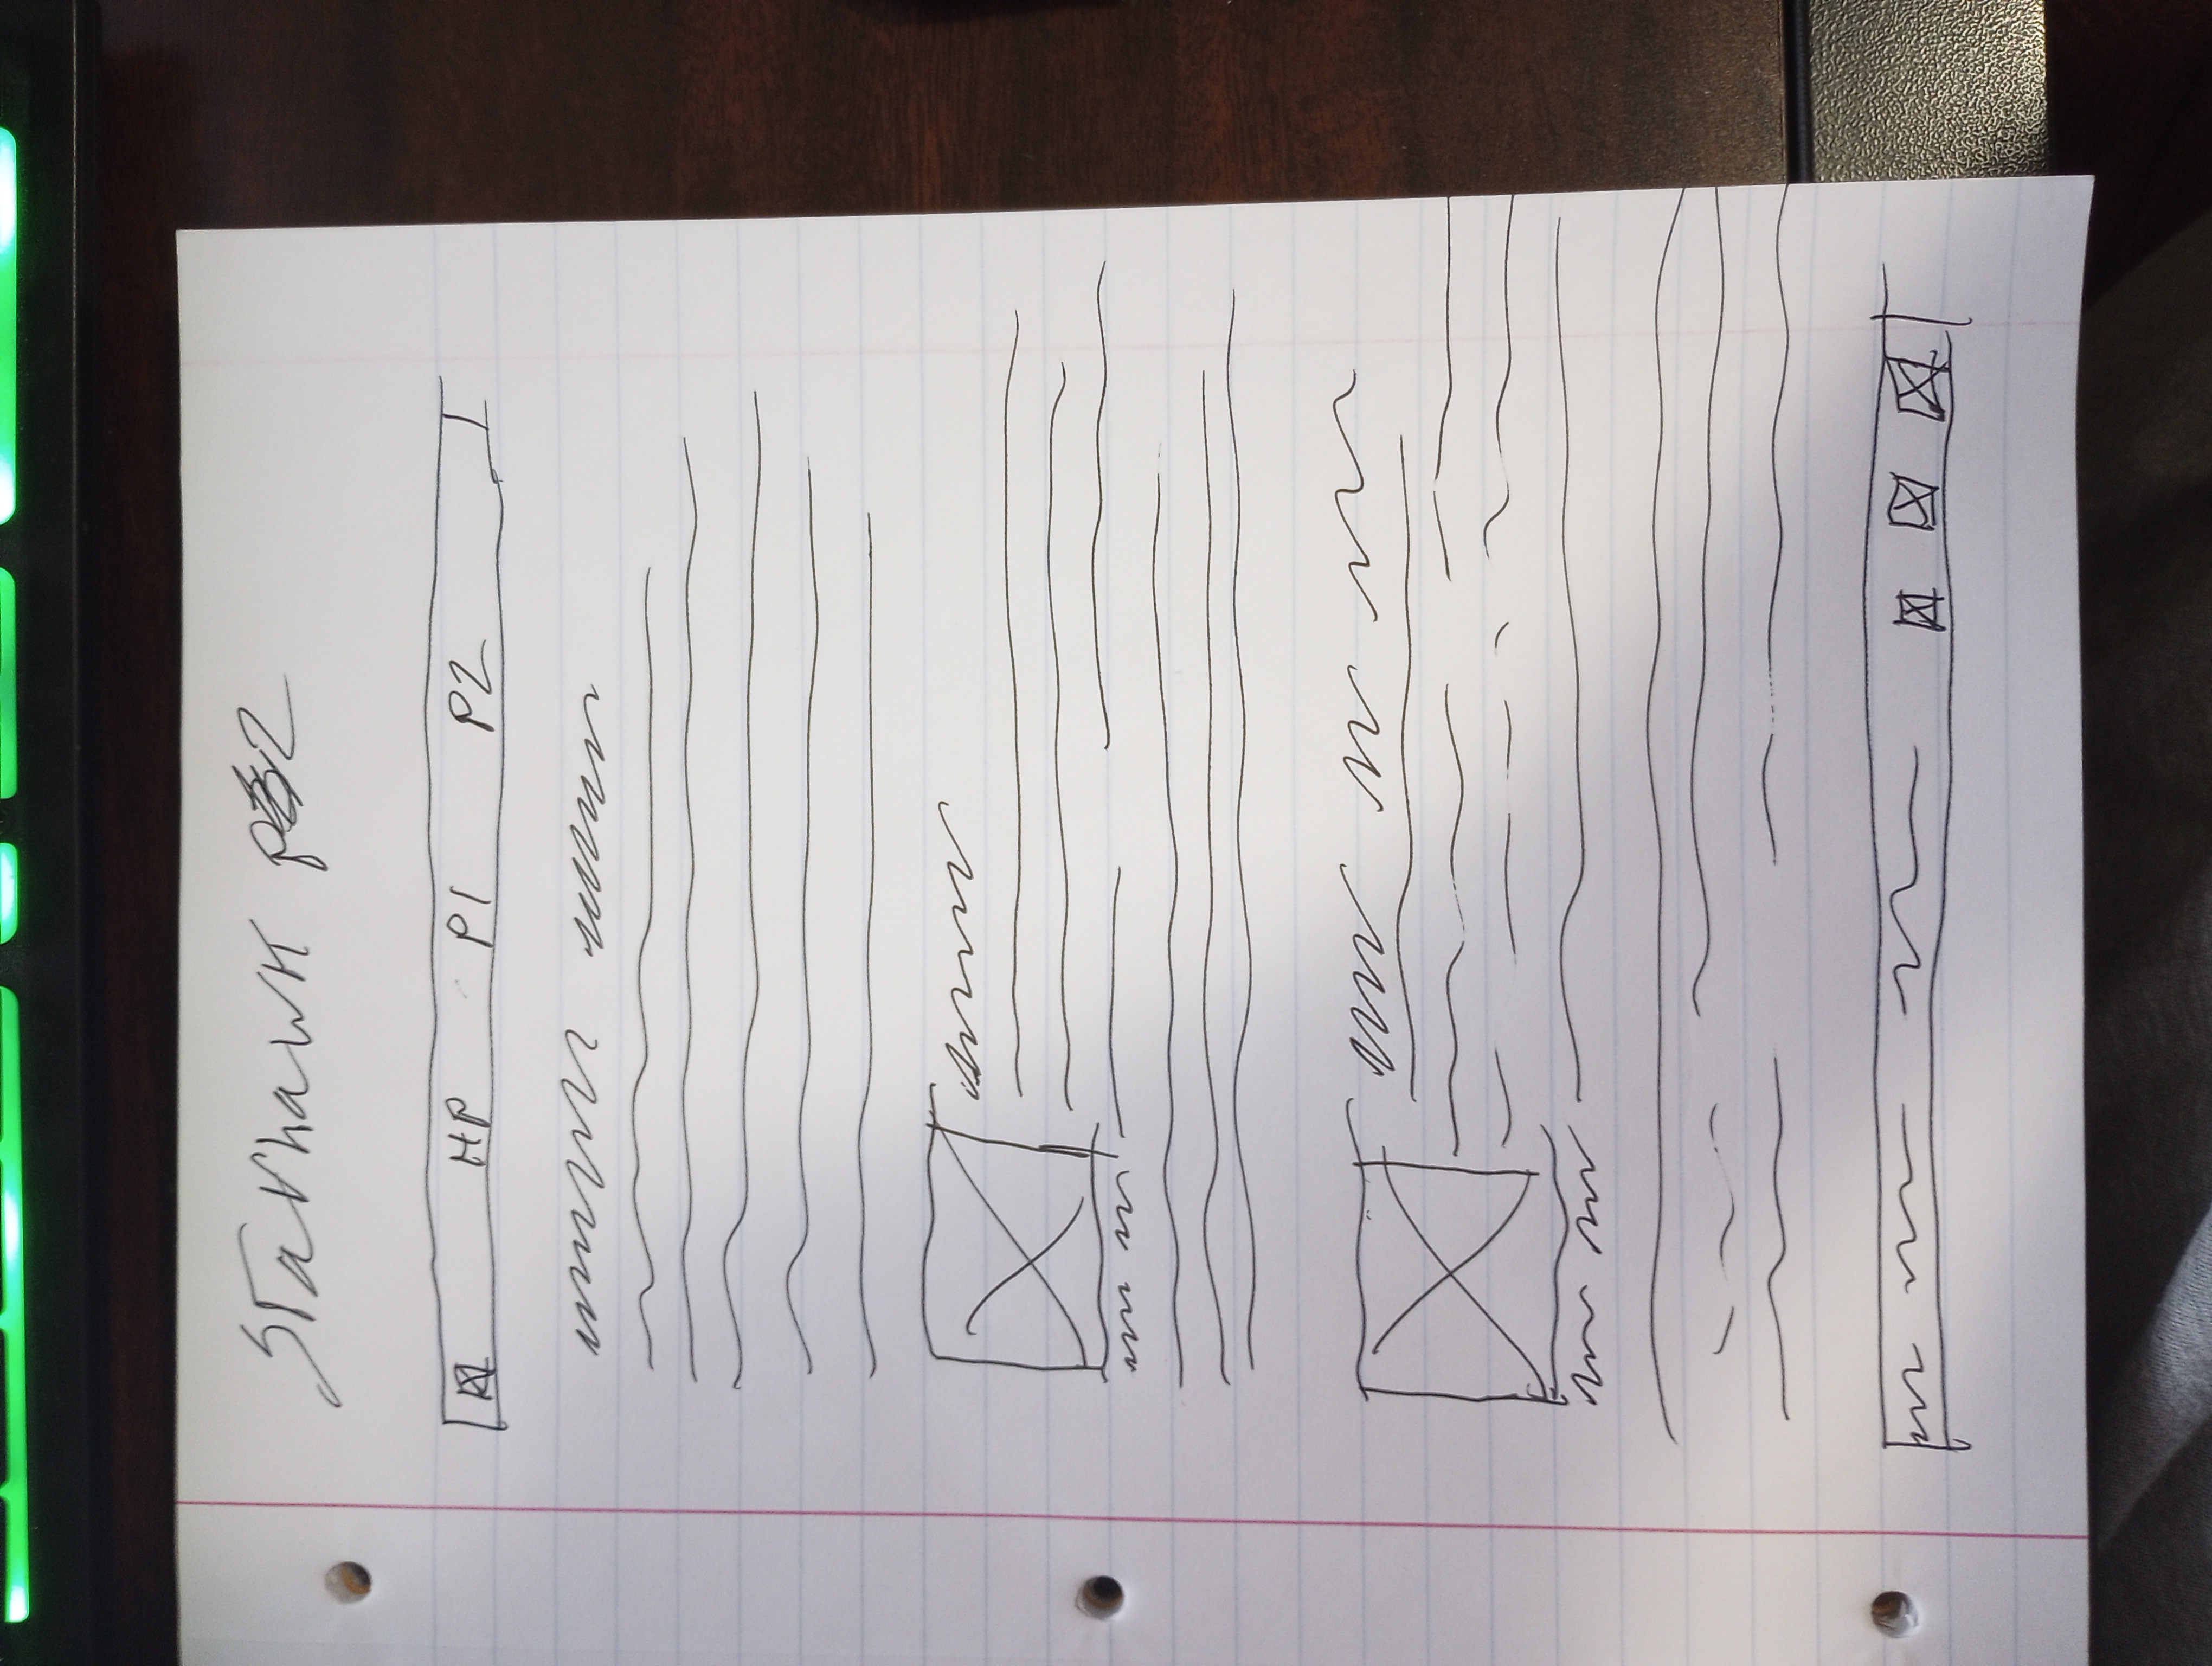 Starhawk p2
HP P1 P2